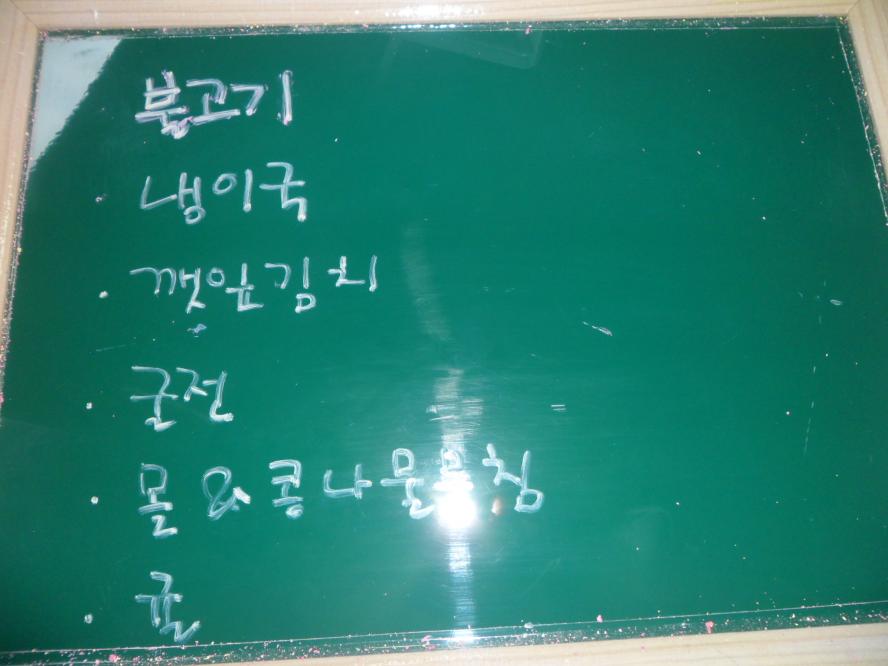 불고기
· 냉이국
· 깻잎김치
· 굴전
· 몰 & 콩나물무침
· 귤